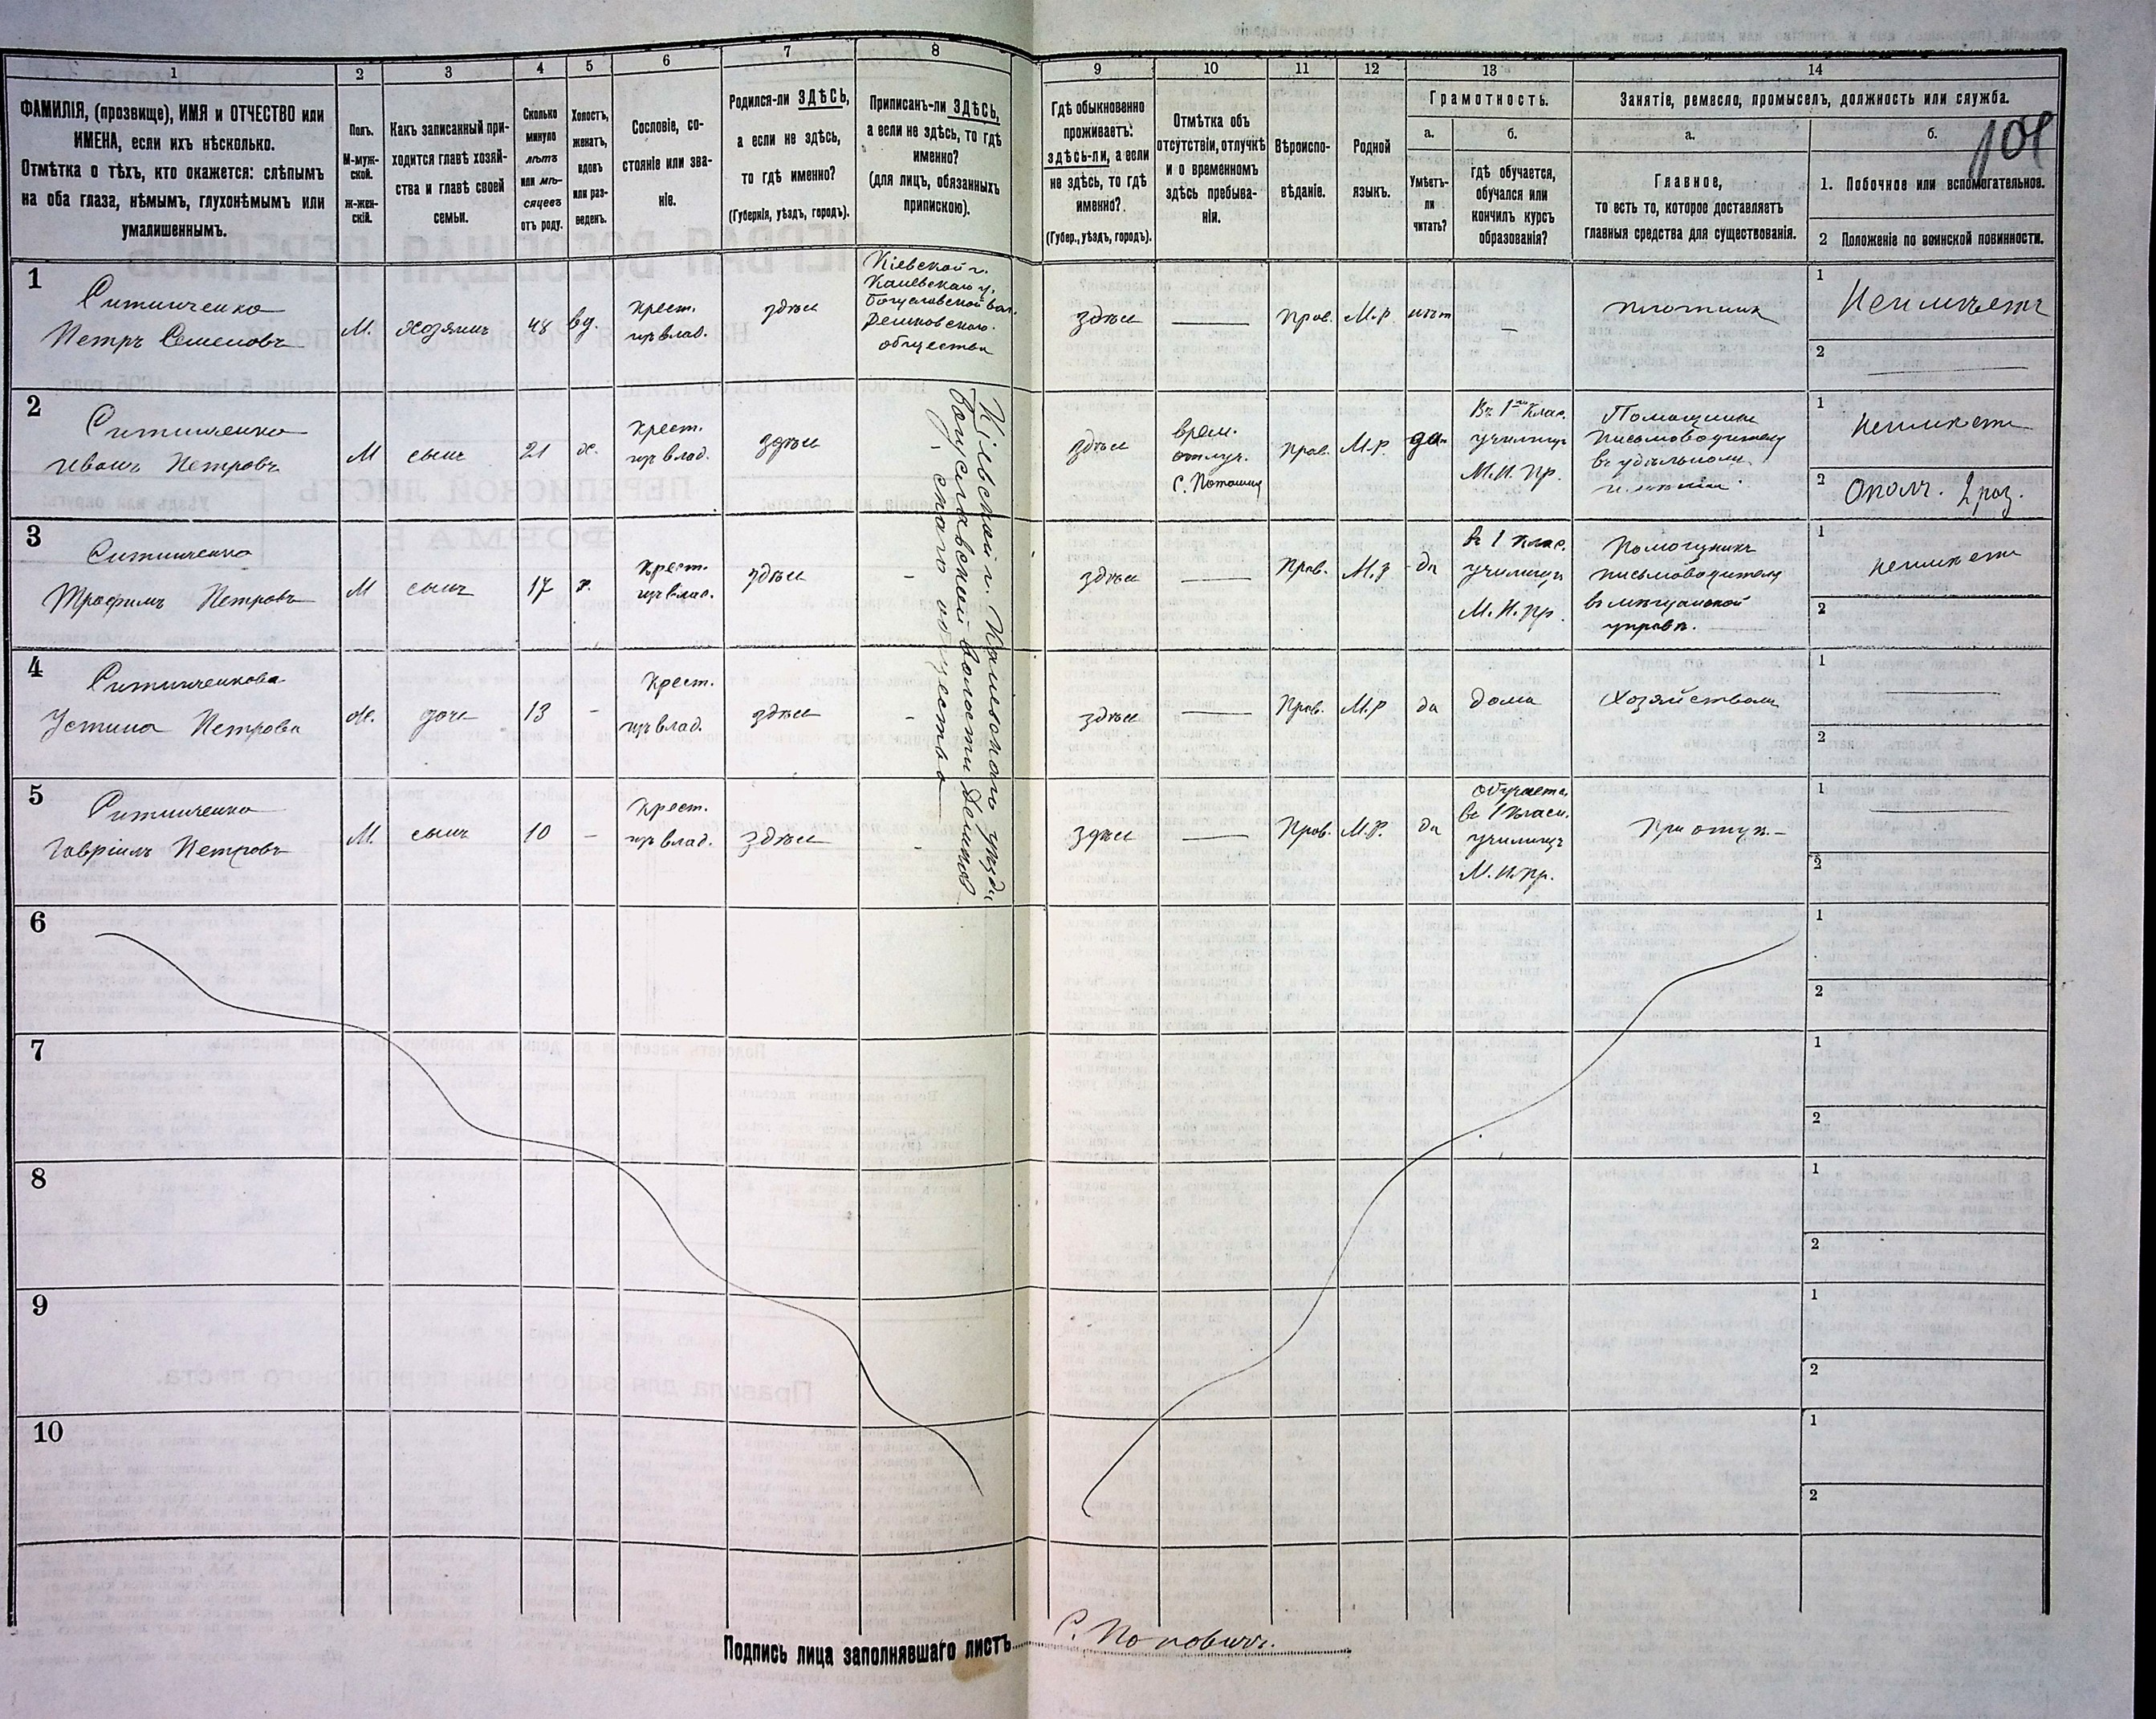 1
2
3
4
5
6
7
8
ФАМИЛІЯ, (прозвище), ИМЯ и ОТЧЕСТВО или
ИМЕНА, если ихъ нѣсколько.
Отмѣтка о тѣхъ, кто окажется: слѣпымъ
на оба глаза, нѣмымъ, глухонѣмымъ или
умалишеннымъ.
Полъ.
М-муж-
ской.
Ж-жен-
скій.
Какъ записанный при-
ходится главѣ хозяй-
ства и главѣ своей
семьи.
Сколько
минуло
лѣтъ
или мѣ-
сяцевъ
отъ роду.
Холостъ,
женатъ,
вдовъ
или раз-
веденъ.
Сословіе, со-
стояніе или зва-
ніе.
Родился-ли ЗДѢСЬ,
а если не здѣсь,
то гдѣ именно?
(Губернія, уѣздъ, городъ).
Приписанъ-ли ЗДѢСЬ,
а если не здѣсь, то гдѣ
именно?
(для лицъ, обязанныхъ
припискою).
9
10
11
12
13
14
Гдѣ обыкновенно
проживаетъ:
здѣсь-ли, а если
не здѣсь, то гдѣ
именно?
(Губер., уѣздъ, городъ).
Отмѣтка объ
отсутствіи, отлучкѣ
и о временномъ
здѣсь пребыва-
ніи.
Вѣроиспо-
вѣданіе.
Родной
языкъ.
Грамотность.
а.
Умѣетъ-
ли
читать?
б.
гдѣ обучается,
обучался или
кончилъ курсъ
образованія?
Занятіе, ремесло, промыселъ, должность или служба.
а.
Главное,
то есть то, которое доставляетъ
главныя средства для существованія.
б.
1. Побочное или вспомогательное.
2 Положеніе по воинской повинности.
1
Ситниченко
Петръ Семеновъ
М.
хозяинъ
48
вд.
Крест.
изъ влад.
здѣсь
Кіевской г.
Каневскаго у.
Богуславской вол.
общества
здѣсь
Прав.
М.Р.
нѣтъ
плотник
1
Неимѣетъ
2
2
Иванъ Петровъ
М
сынъ
21
х.
Крест.
изъ влад.
здѣсь
Кіевской г. Каневского уѣзда
Богуславской волости
ского общества
здѣсь
врем.
отлуч.
Прав.
М.Р.
да
Въ 1 клас.
училищѣ
М.Н.Пр.
Помощникъ
письмоводителя
1
неимѣетъ
2
Ополч. 2 раз.
3
Трофимъ Петровъ
М
сынъ
17
х.
Крест.
изъ влад.
здѣсь
здѣсь
Прав.
М.Р
да
въ 1 клас.
училищѣ
М.Н.Пр.
Помощникъ
письмоводителя
въ мѣщанской
управѣ.
1
неимѣетъ
2
4
Устина Петрова
Ж.
дочь
13
Крест.
изъ влад.
здѣсь
здѣсь
Прав.
М.Р
да
дома
Хозяйством
1
2
5
Гавріилъ Петровъ
М.
сынъ
10
Крест.
изъ влад.
здѣсь
здѣсь
Прав.
М.Р.
да
обучается
въ 1 класн.
училищѣ
М.Н.Пр.
При отцѣ
1
2
6
1
2
7
1
2
8
1
2
9
1
2
10
1
2
Подпись лица заполнявшаго листъ
С. Поповичъ.